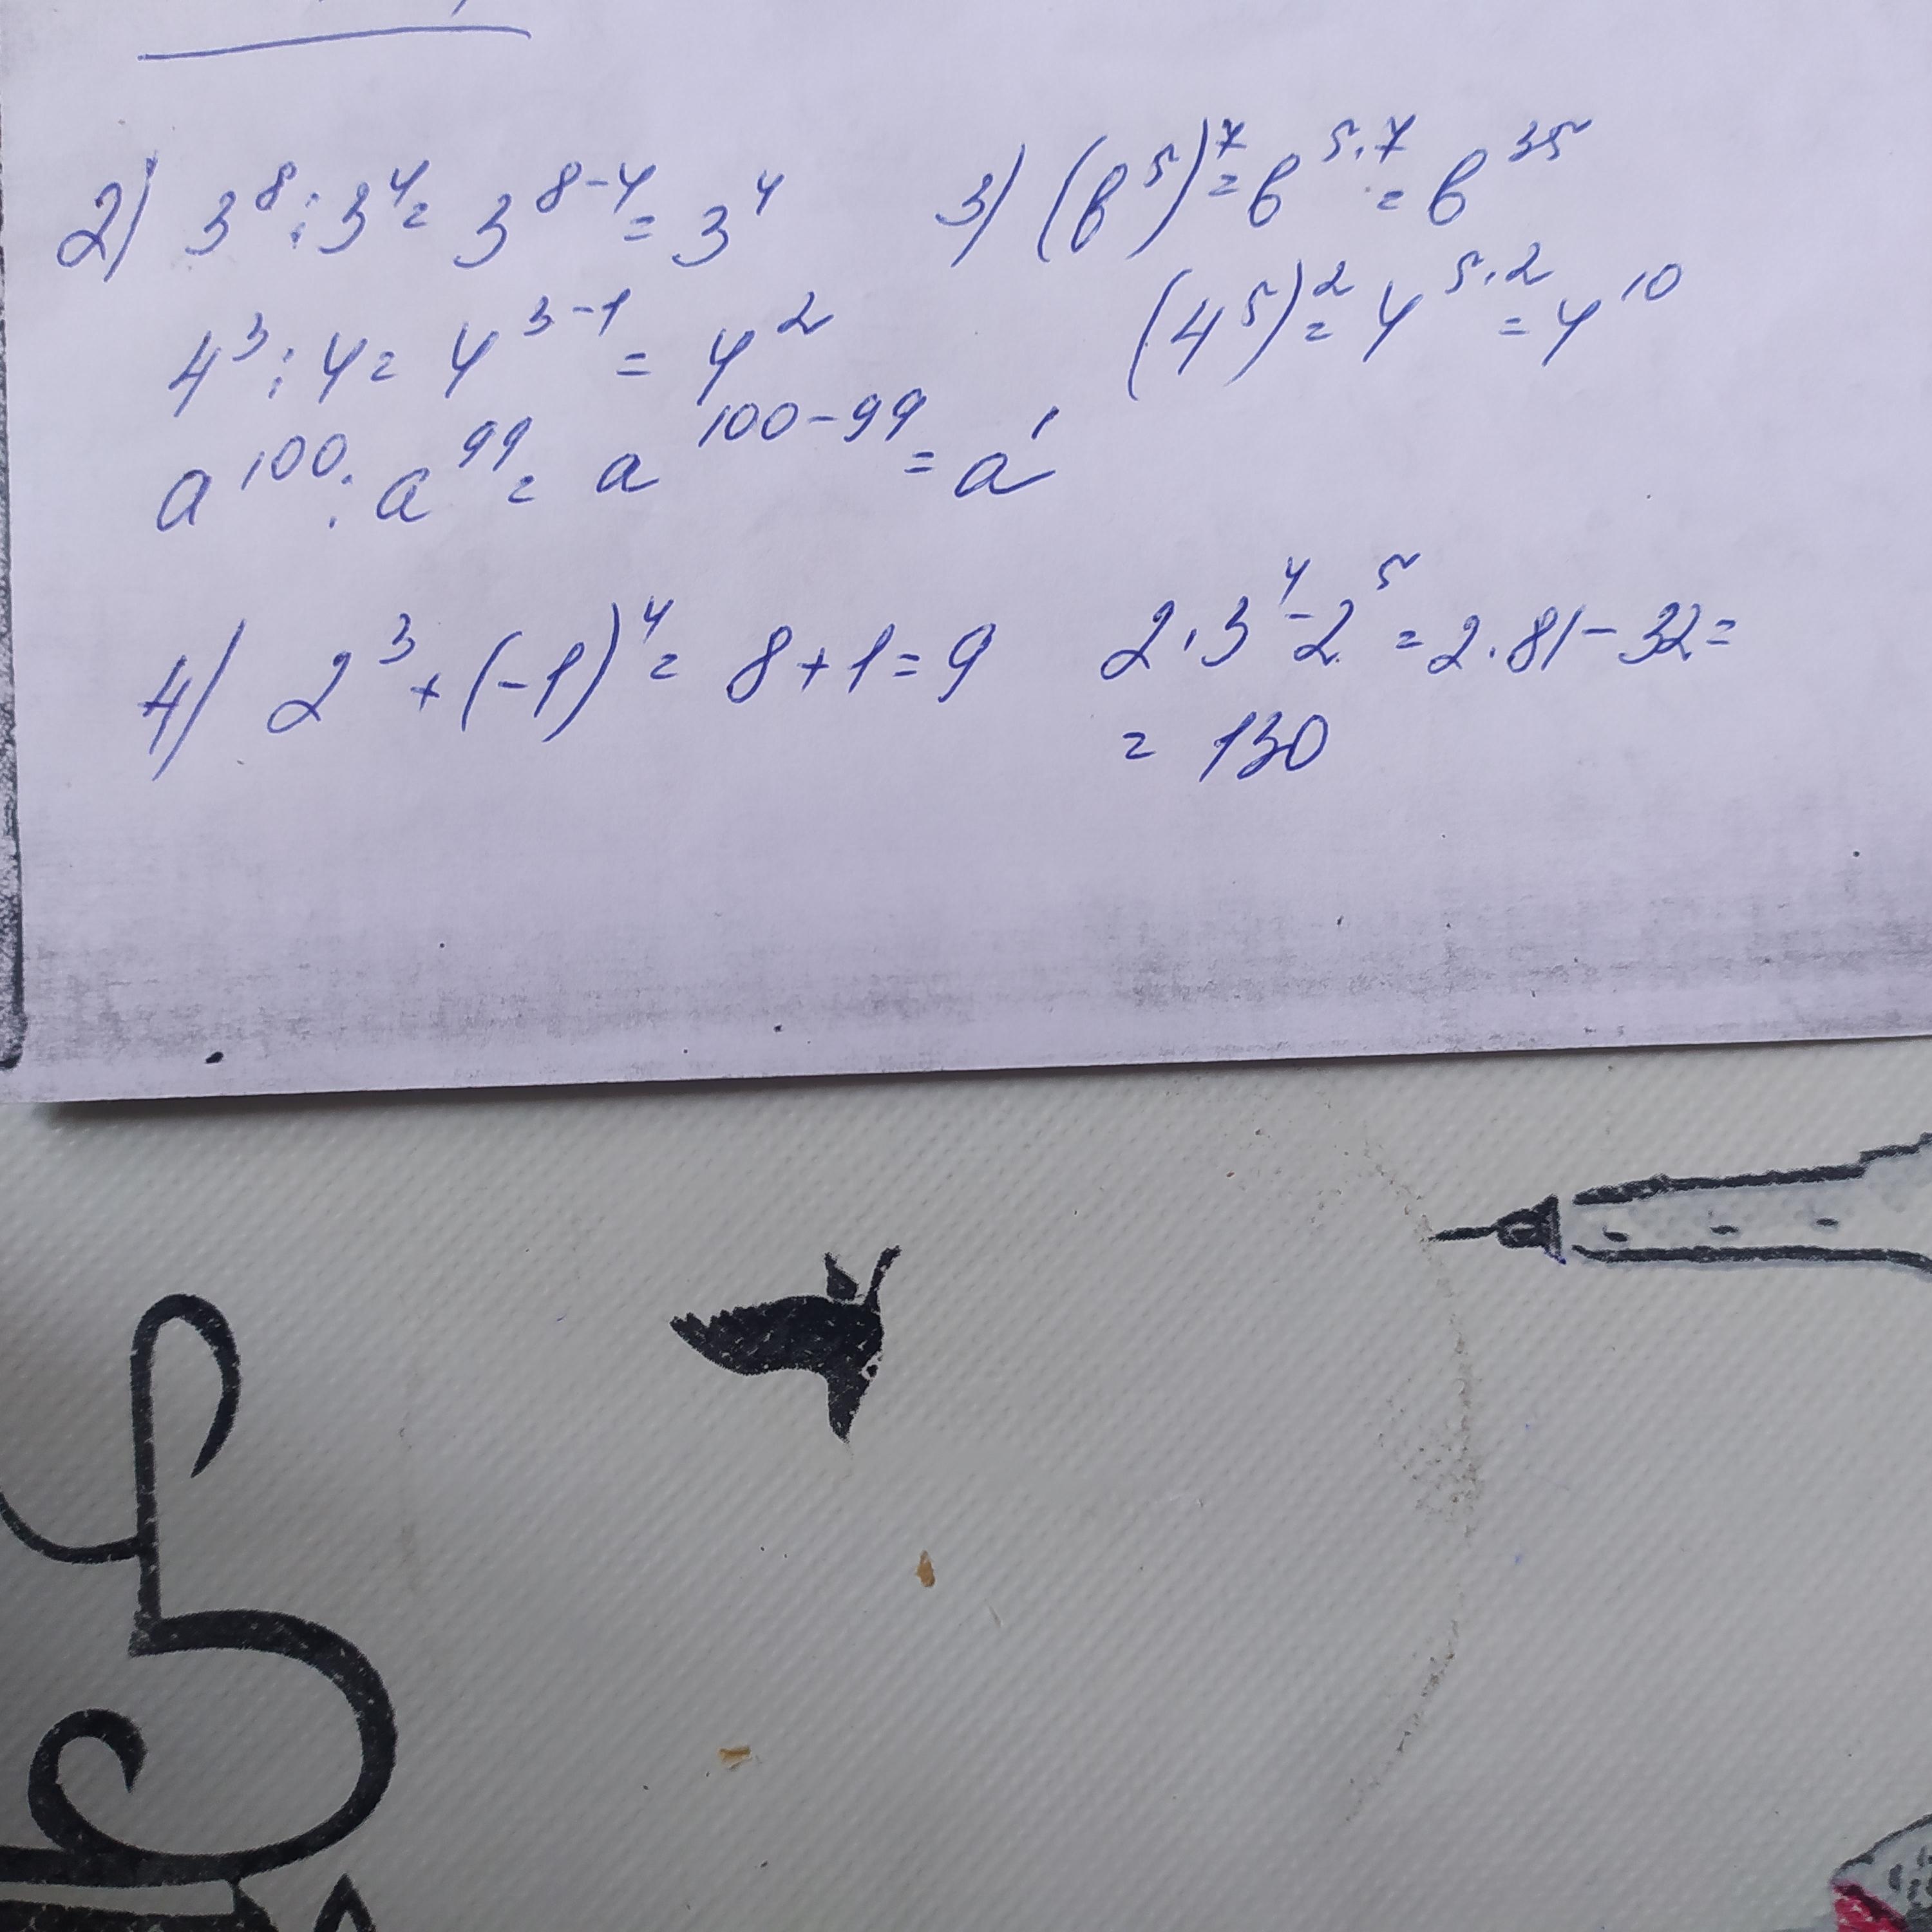 2) 3⁸ : 3⁴ = 3⁸⁻⁴ = 3⁴
4³ : 4 = 4³⁻¹ = 4²
a¹⁰⁰ : a⁹⁹ = a¹⁰⁰⁻⁹⁹ = a¹
3) (b⁵)⁷ = b⁵·⁷ = b³⁵
(4⁵)² = 4⁵·² = 4¹⁰
4) 2³ + (-1)⁴ = 8 + 1 = 9
2 · 3⁴ - 2⁵ = 2 · 81 - 32 =
= 130